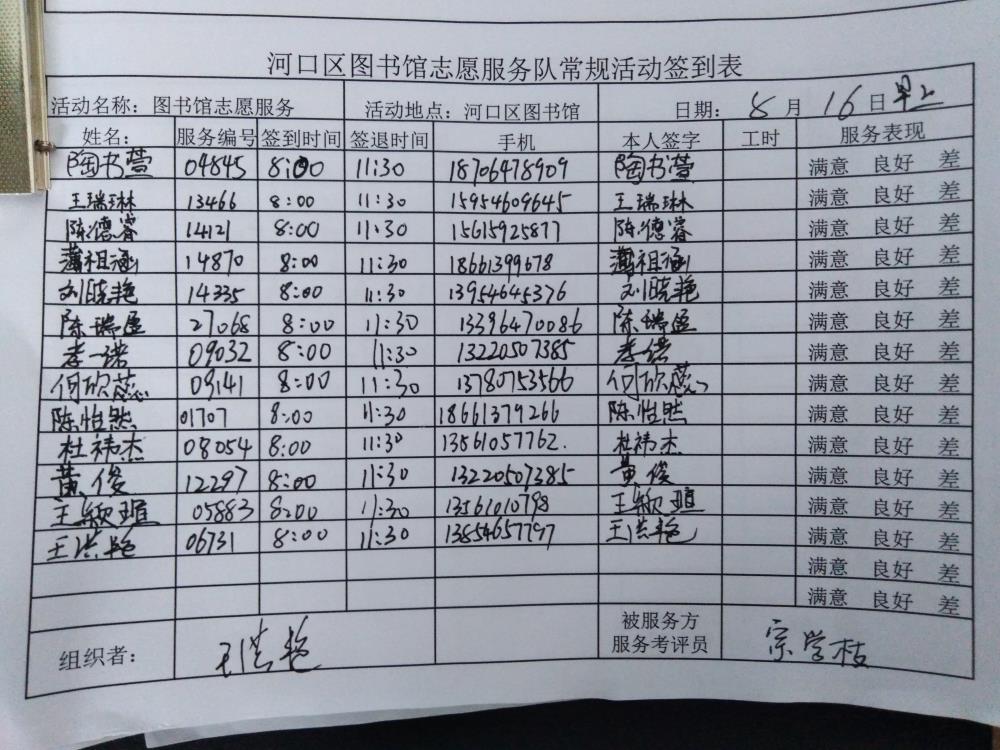 河口区图书馆志愿服务队常规活动签到表
活动名称：图书馆志愿服务 活动地点：河口区图书馆 日期：8月16日早上
姓名： 服务编号 签到时间 签退时间 手机 本人签字 工时 服务表现
陶书萱 04845 8:00 11:30 18706478909 陶书萱 满意 良好 差
王瑞琳 13466 8:00 11:30 15954609645 王瑞琳 满意 良好 差
陈德睿 14121 8:00 11:30 15615925877 陈德睿 满意 良好 差
祖涵 14870 8:00 11:30 18661399678 祖涵 满意 良好 差
刘晓艳 14335 8:00 11:30 13954645376 刘晓艳 满意 良好 差
陈瑞 27068 8:00 11:30 13396470086 陈瑞 满意 良好 差
李一诺 09032 8:00 11:30 13220507385 李一诺 满意 良好 差
何欣蕊 09141 8:00 11:30 13780753566 何欣蕊 满意 良好 差
陈怡然 01707 8:00 11:30 18661379266 陈怡然 满意 良好 差
杜祎杰 08054 8:00 11:30 13561057762. 杜祎杰 满意 良好 差
黄俊 12297 8:00 11:30 13220507385 黄俊 满意 良好 差
王颖瑄 05883 8:00 11:30 13561010798 王颖瑄 满意 良好 差
王洪艳 06731 8:00 11:30 13854657797 王洪艳 满意 良好 差
满意 良好 差
满意 良好 差
组织者： 王洪艳 被服务方
服务考评员 宗学